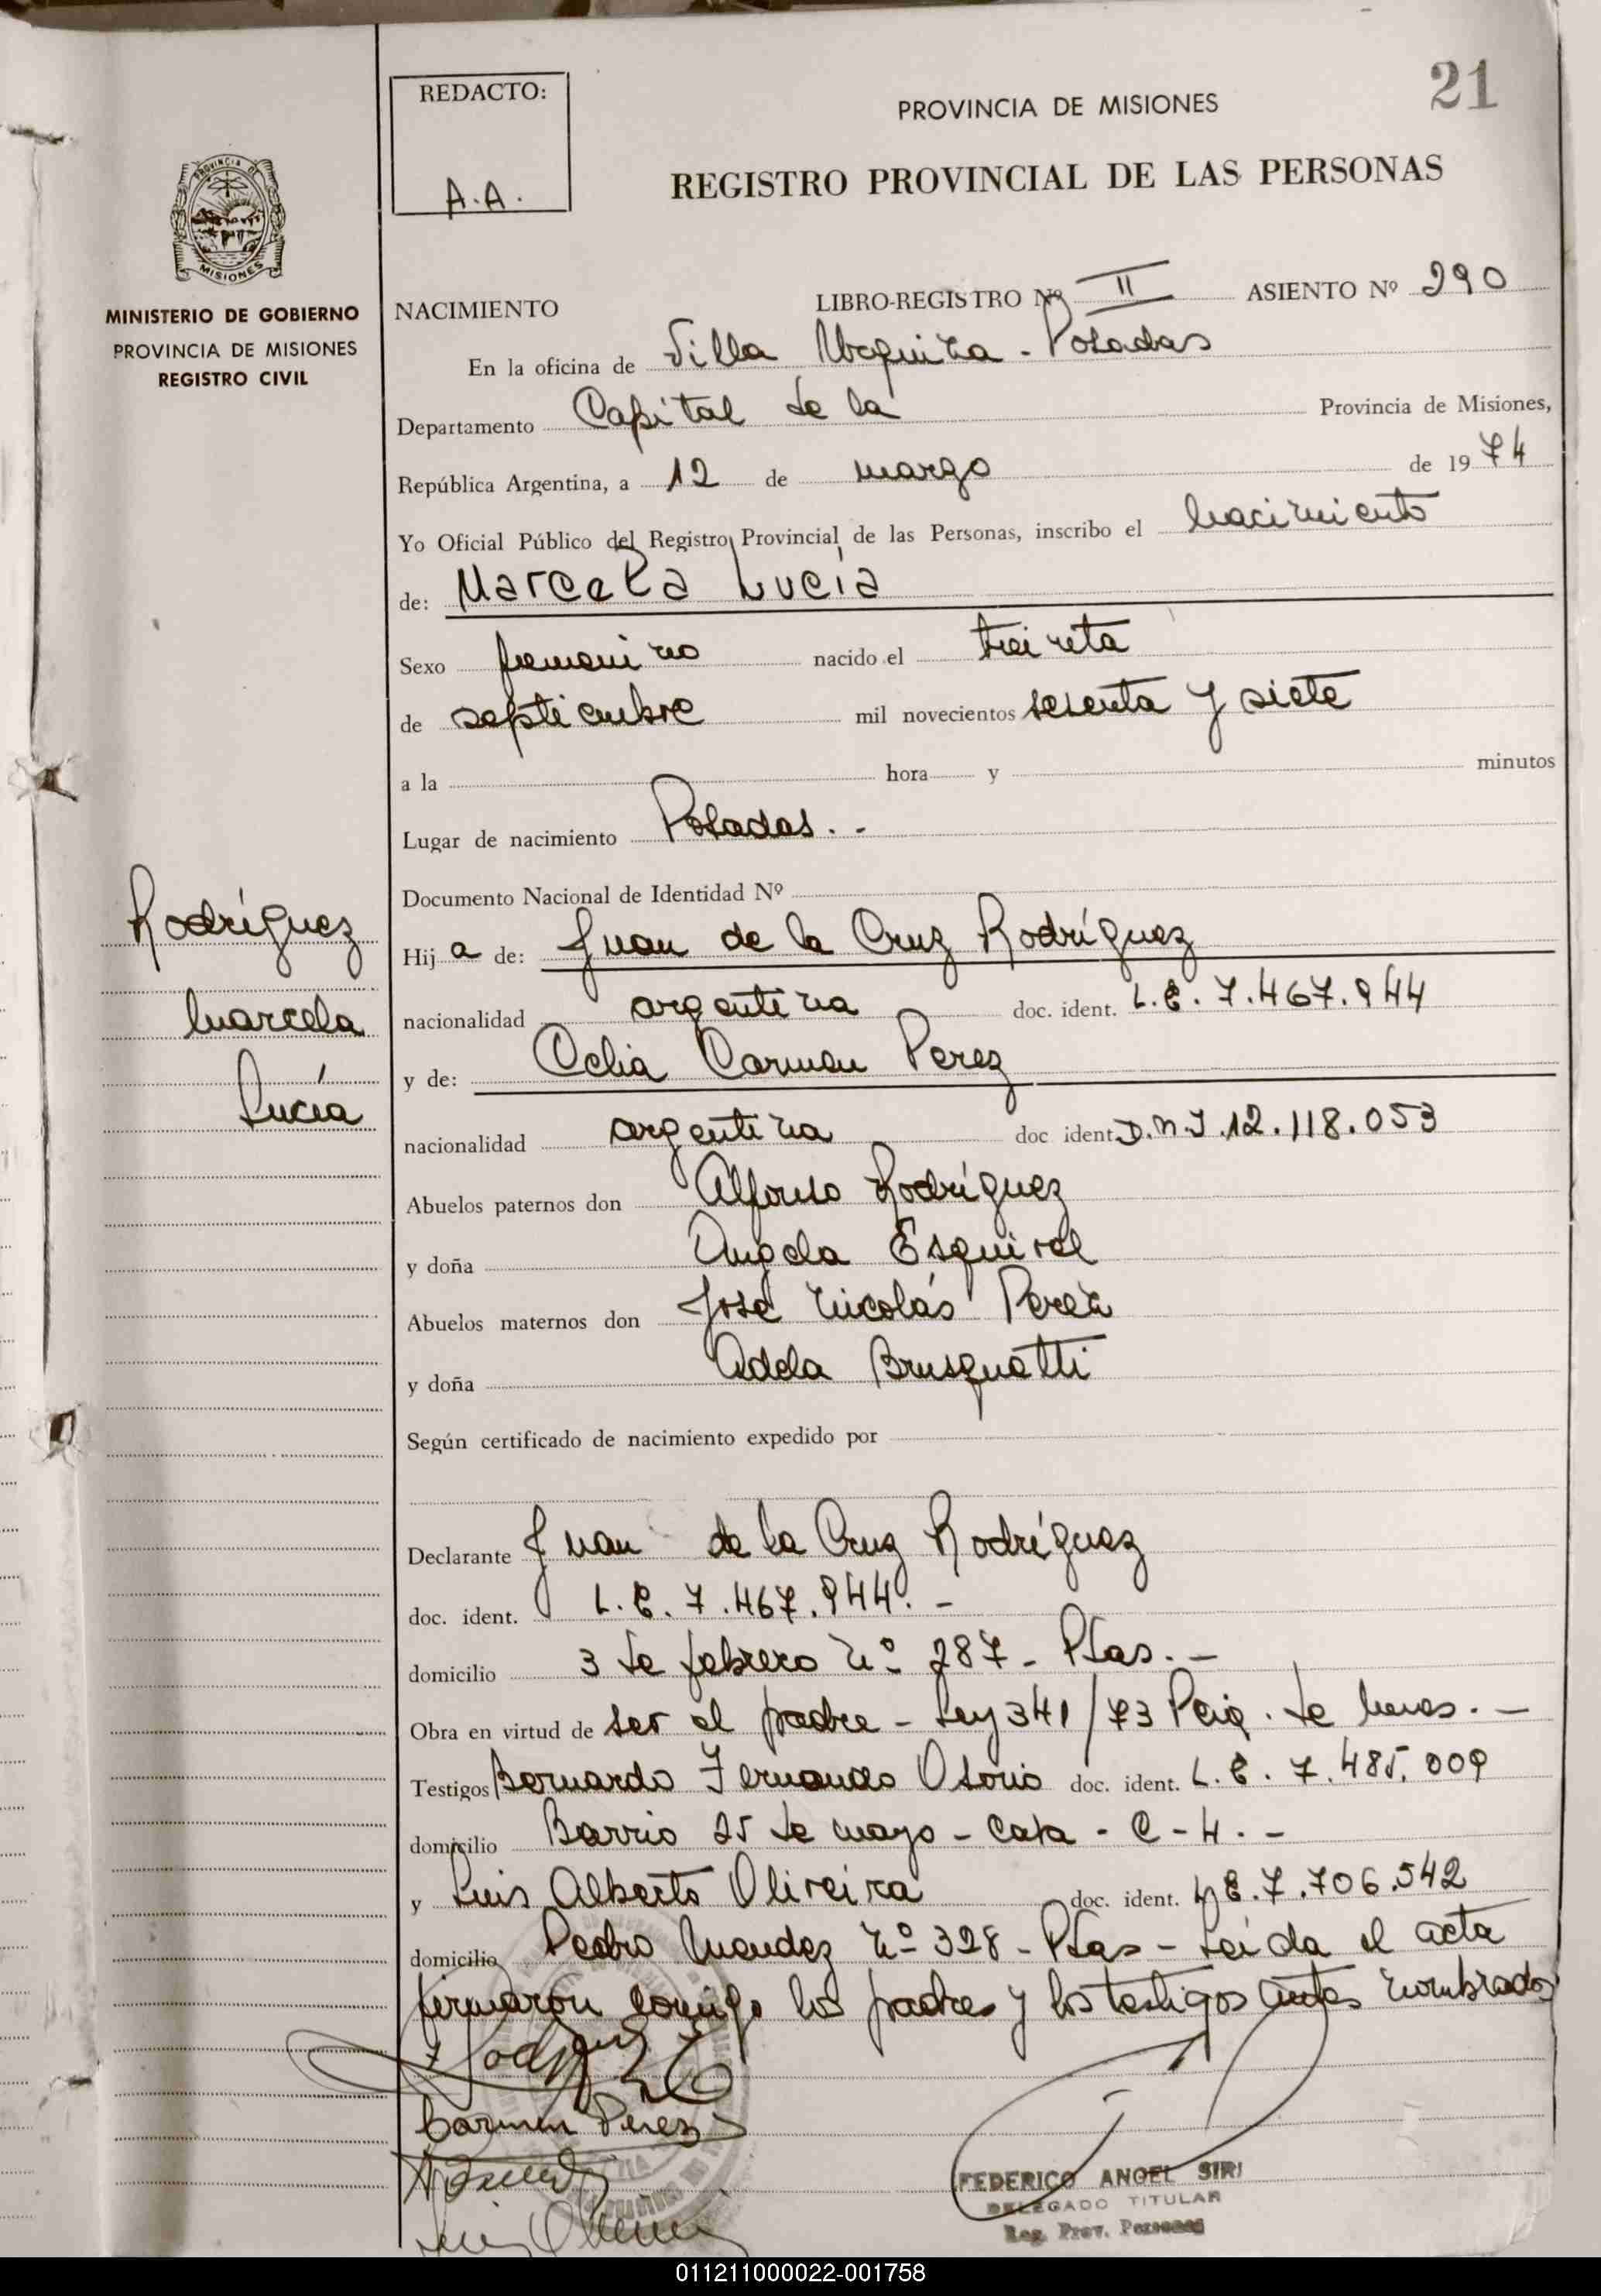 21
REDACTO:
A.A.
PROVINCIA DE MISIONES
REGISTRO PROVINCIAL DE LAS PERSONAS
PROVINCIA DE
MISIONES
MINISTERIO DE GOBIERNO
PROVINCIA DE MISIONES
REGISTRO CIVIL
NACIMIENTO LIBRO-REGISTRO Nº II ASIENTO Nº 290
En la oficina de Villa Urquiza - Posadas
Departamento Capital de la Provincia de Misiones,
República Argentina, a 12 de marzo de 1974
Yo Oficial Público del Registro Provincial de las Personas, inscribo el nacimiento
de: Marcela Lucía
Sexo femenino nacido el treinta
de septiembre mil novecientos sesenta y siete
a la hora y minutos
Lugar de nacimiento Posadas. -
Documento Nacional de Identidad Nº
Rodríguez
Marcela
Lucía
Hija de: Juan de la Cruz Rodríguez
nacionalidad argentina doc. ident. L.E. 7.467.944
y de: Celia Carmen Perez
nacionalidad argentina doc ident. D.N.I. 12.118.053
Abuelos paternos don Alfonso Rodríguez
y doña Angela Esquivel
Abuelos maternos don José Nicolás Perez
y doña Adela Brusquetti
Según certificado de nacimiento expedido por
Declarante Juan de la Cruz Rodríguez
doc. ident. L.E. 7.467.944. -
domicilio 3 de febrero Nº 287 - Pdas. -
Obra en virtud de ser el padre - Ley 341/73 -
Testigos Bernardo Fernando Osorio doc. ident. L.E. 7.485.009
domicilio Barrio 25 de mayo - Casa - C - 4. -
y Luis Alberto Oliveira doc. ident. L.E. 7.706.542
domicilio Pedro Mendez Nº 328 - Pdas - Leida el acta
firmaron conmigo los padres y los testigos antes nombrados
Carmen Pérez
FEDERICO ANGEL SIRI
DELEGADO TITULAR
Reg. Prov. Personas
011211000022-001758